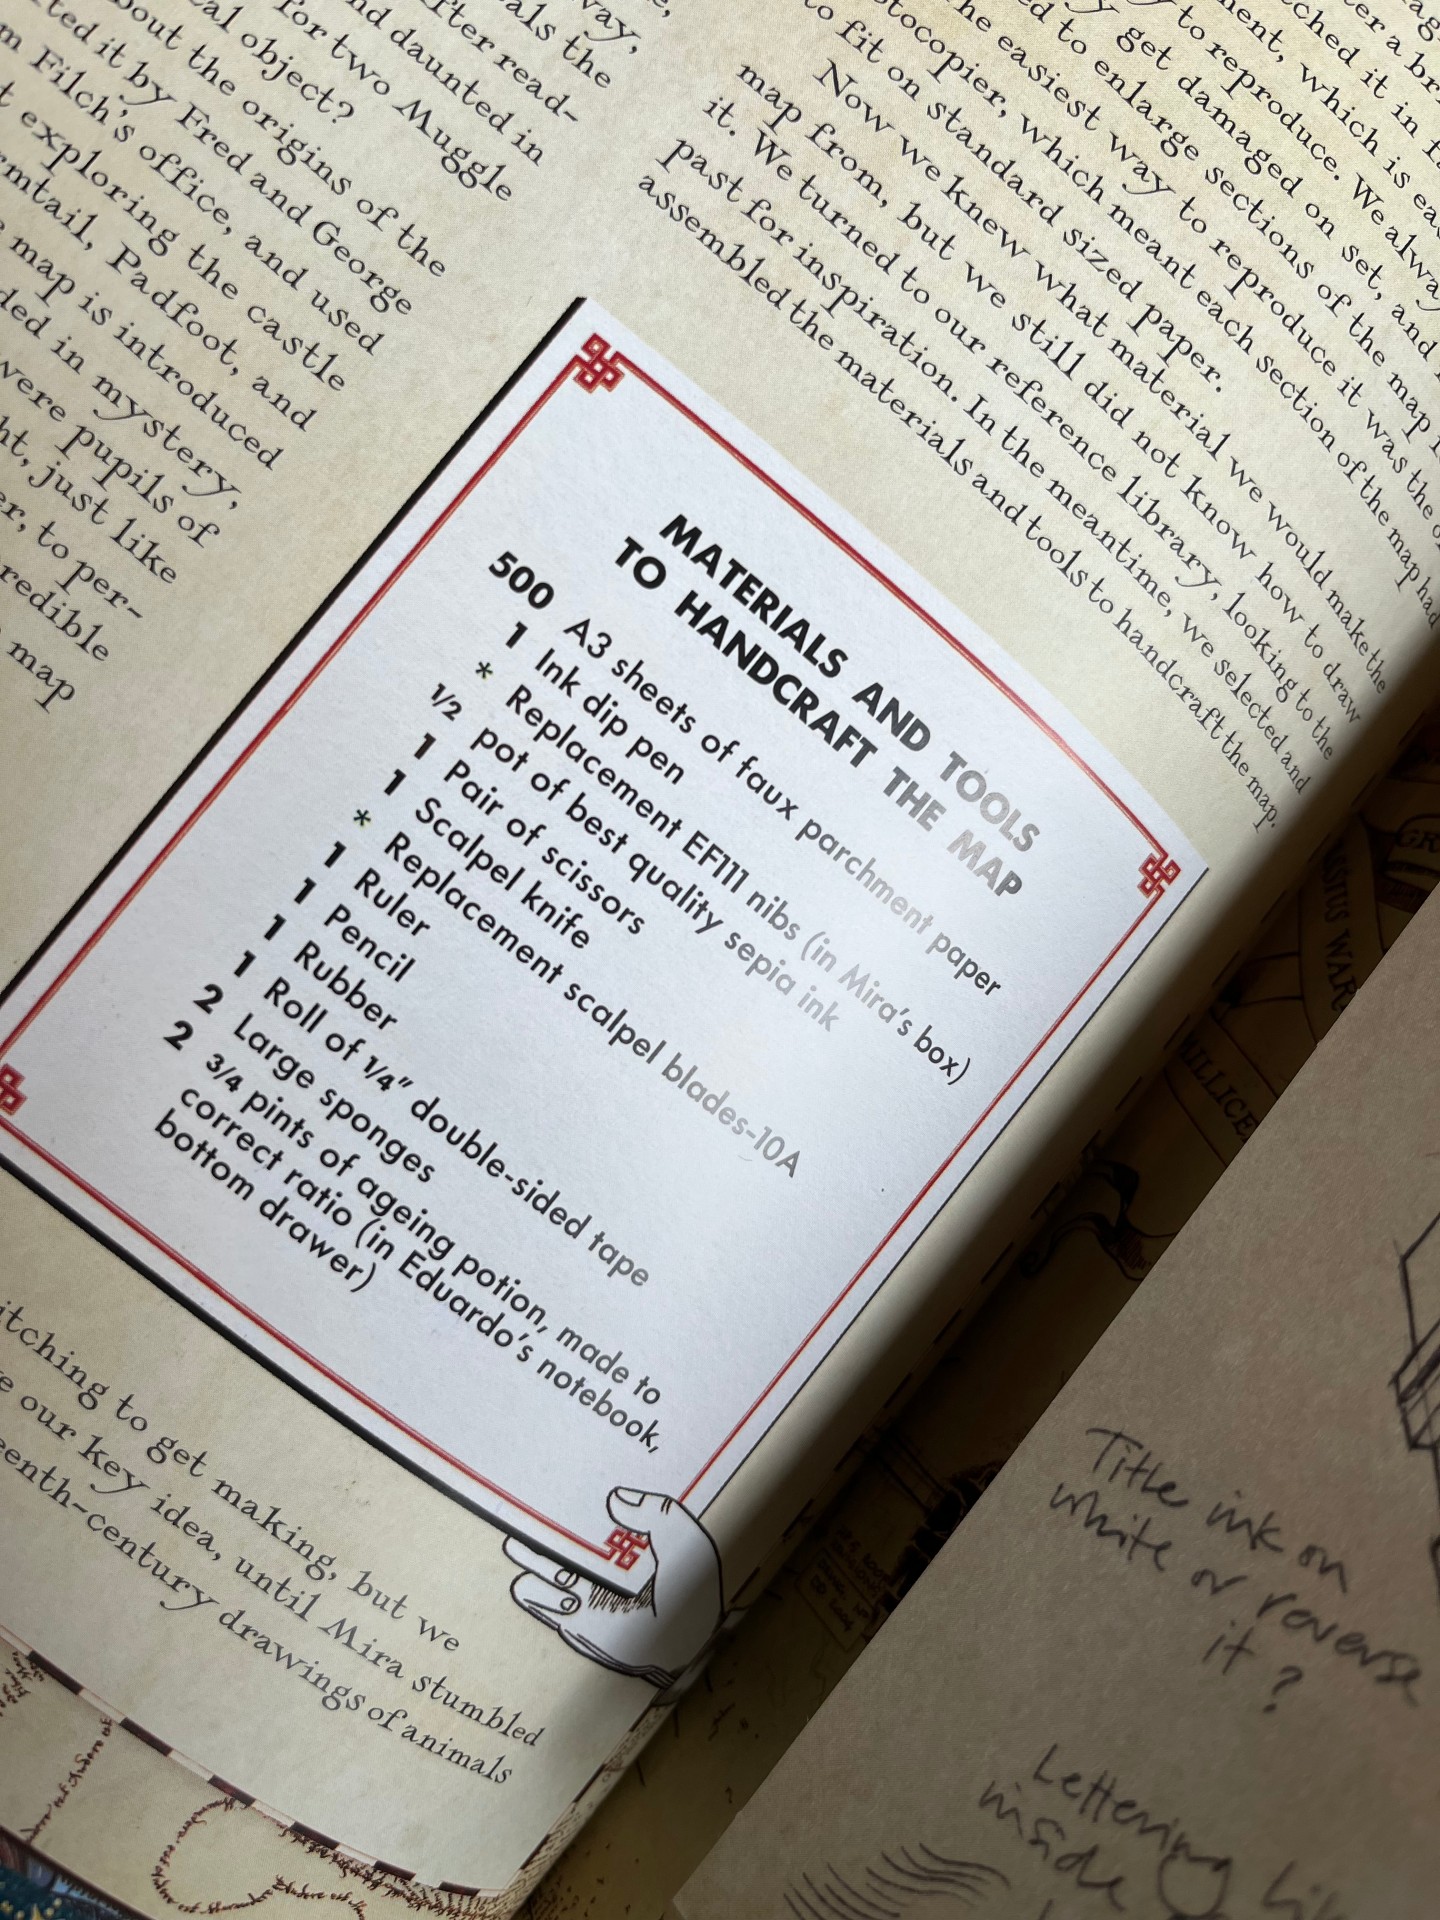 way,
als the
fter read-
nd daunted in
for two Muggle
al object?
bout the origins of the
ted it by Fred and George
m Filch's office, and used
t exploring the castle
rmtail, Padfoot, and
map is introduced
ded in mystery,
were pupils of
ht, just like
er, to per-
redible
map
MATERIALS AND TOOLS
TO HANDCRAFT THE MAP
500 A3 sheets of faux parchment paper
1 Ink dip pen
* Replacement EF111 nibs (in Mira's box)
1/2 pot of best quality sepia ink
1 Pair of scissors
1 Scalpel knife
* Replacement scalpel blades-10A
1 Ruler
1 Pencil
1 Rubber
1 Roll of 1/4" double-sided tape
2 Large sponges
2 3/4 pints of ageing potion, made to
correct ratio (in Eduardo's notebook,
bottom drawer)
itching to get making, but we
e our key idea, until Mira stumbled
eenth-century drawings of animals
ter a br
tched it in
ment, which is
to reproduce. We alway
get damaged on set, and
ed to enlarge sections of the map
the easiest way to reproduce it was the
tocopier, which meant each section of the map had
to fit on standard sized paper.
Now we knew what material we would make the
map from, but we still did not know how to draw
it. We turned to our reference library, looking to the
past for inspiration. In the meantime, we selected and
assembled the materials and tools to handcraft the map.
Title ink on
white or reverse
it?
Lettering
inside